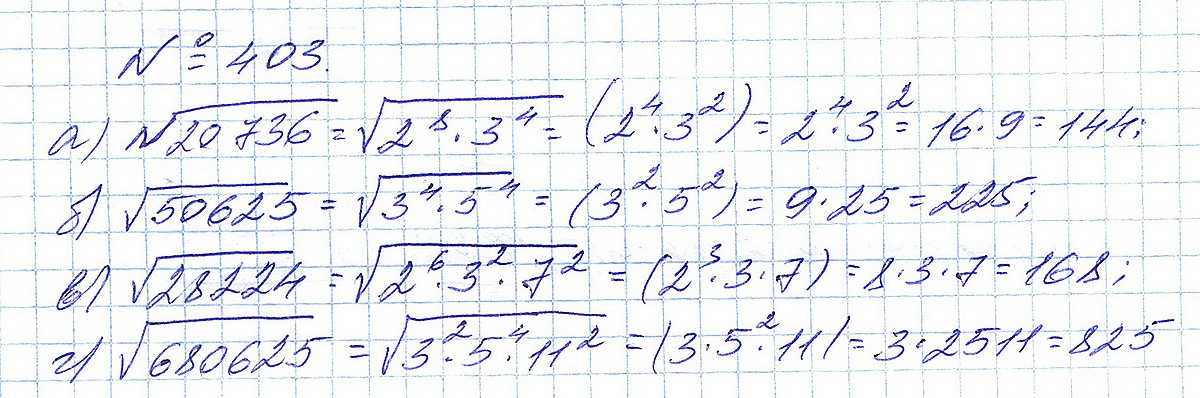 № 403.
а) √20736 = √2⁸·3⁴ = (2⁴·3²) = 2⁴·3² = 16·9 = 144;
б) √50625 = √3⁴·5⁴ = (3²·5²) = 9·25 = 225;
в) √28224 = √2⁶·3²·7² = (2³·3·7) = 8·3·7 = 168;
г) √680625 = √3²·5⁴·11² = (3·5²·11) = 3·2511 = 825